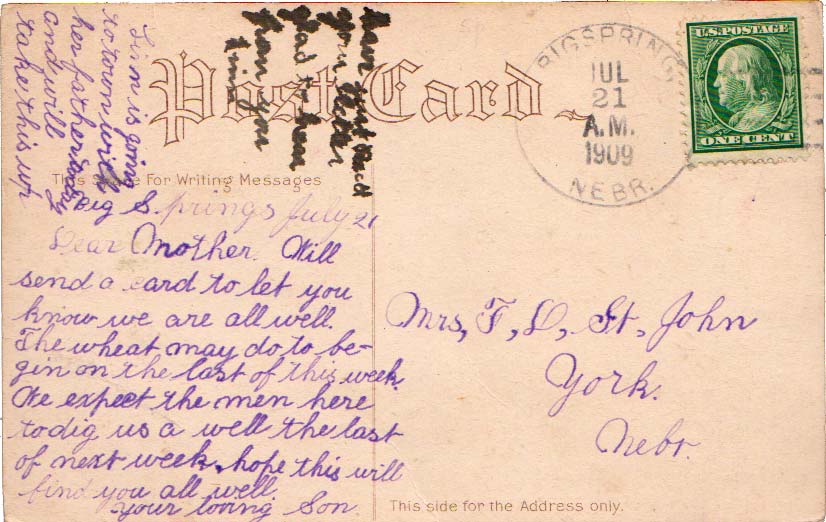 Have just read
your letter
glad to hear
from you
Post Card
BIGSPRING
JUL
21
A.M.
1909
NEBR.
U.S. POSTAGE
ONE CENT
is going
to town with
her father
and will
take this up
This Space For Writing Messages
Big Springs July 21
Dear Mother. Will
send a card to let you
know we are all well.
The wheat may do to be-
gin on the last of this week.
We expect the men here
to dig us a well the last
of next week. hope this will
find you all well.
your loving Son.
Mrs, F, D, St, John
York.
Nebr.
This side for the Address only.